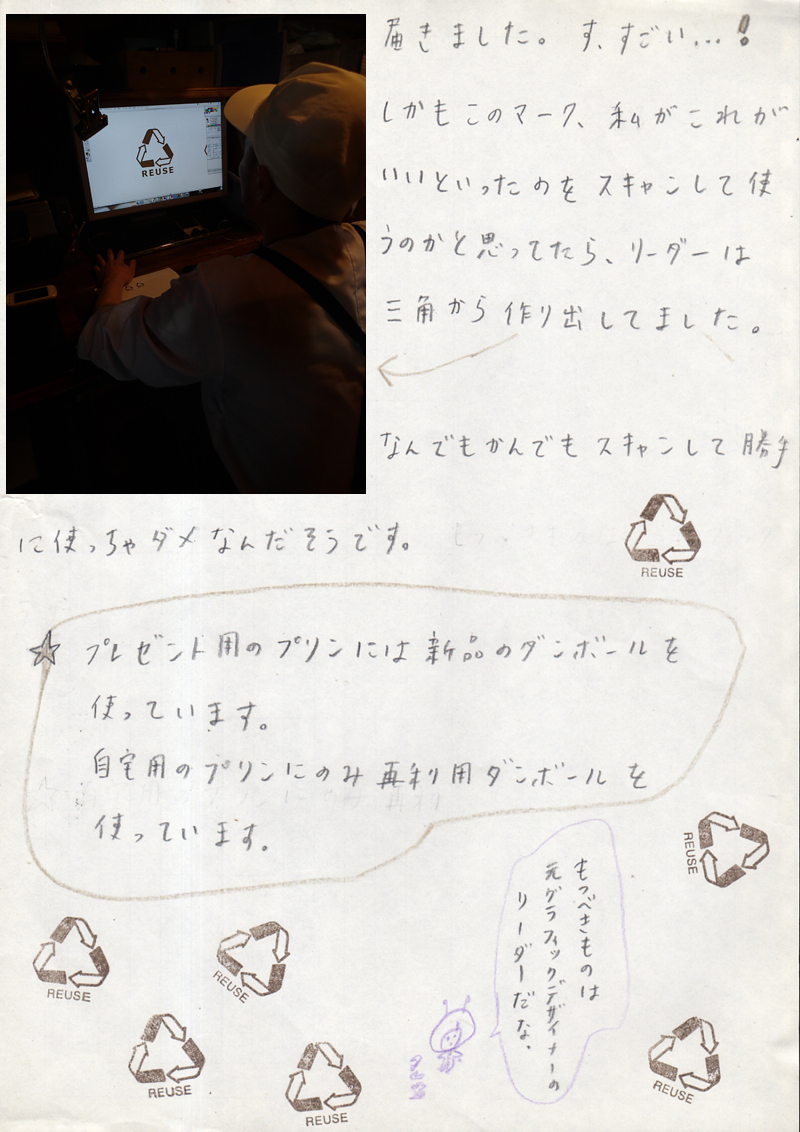 届きました。す、すごい…！
しかもこのマーク、私がこれが
いいといったのをスキャンして使
うのかと思ってたら、リーダーは
三角から作り出してました。
REUSE
なんでもかんでもスキャンして勝手
に使っちゃダメなんだそうです。
REUSE
☆プレゼント用のプリンには新品のダンボールを
使っています。
自宅用のプリンにのみ再利用ダンボールを
使っています。
REUSE
もつべきものは
元グラフィックデザイナーの
リーダーだな、
REUSE
REUSE
REUSE
REUSE
REUSE